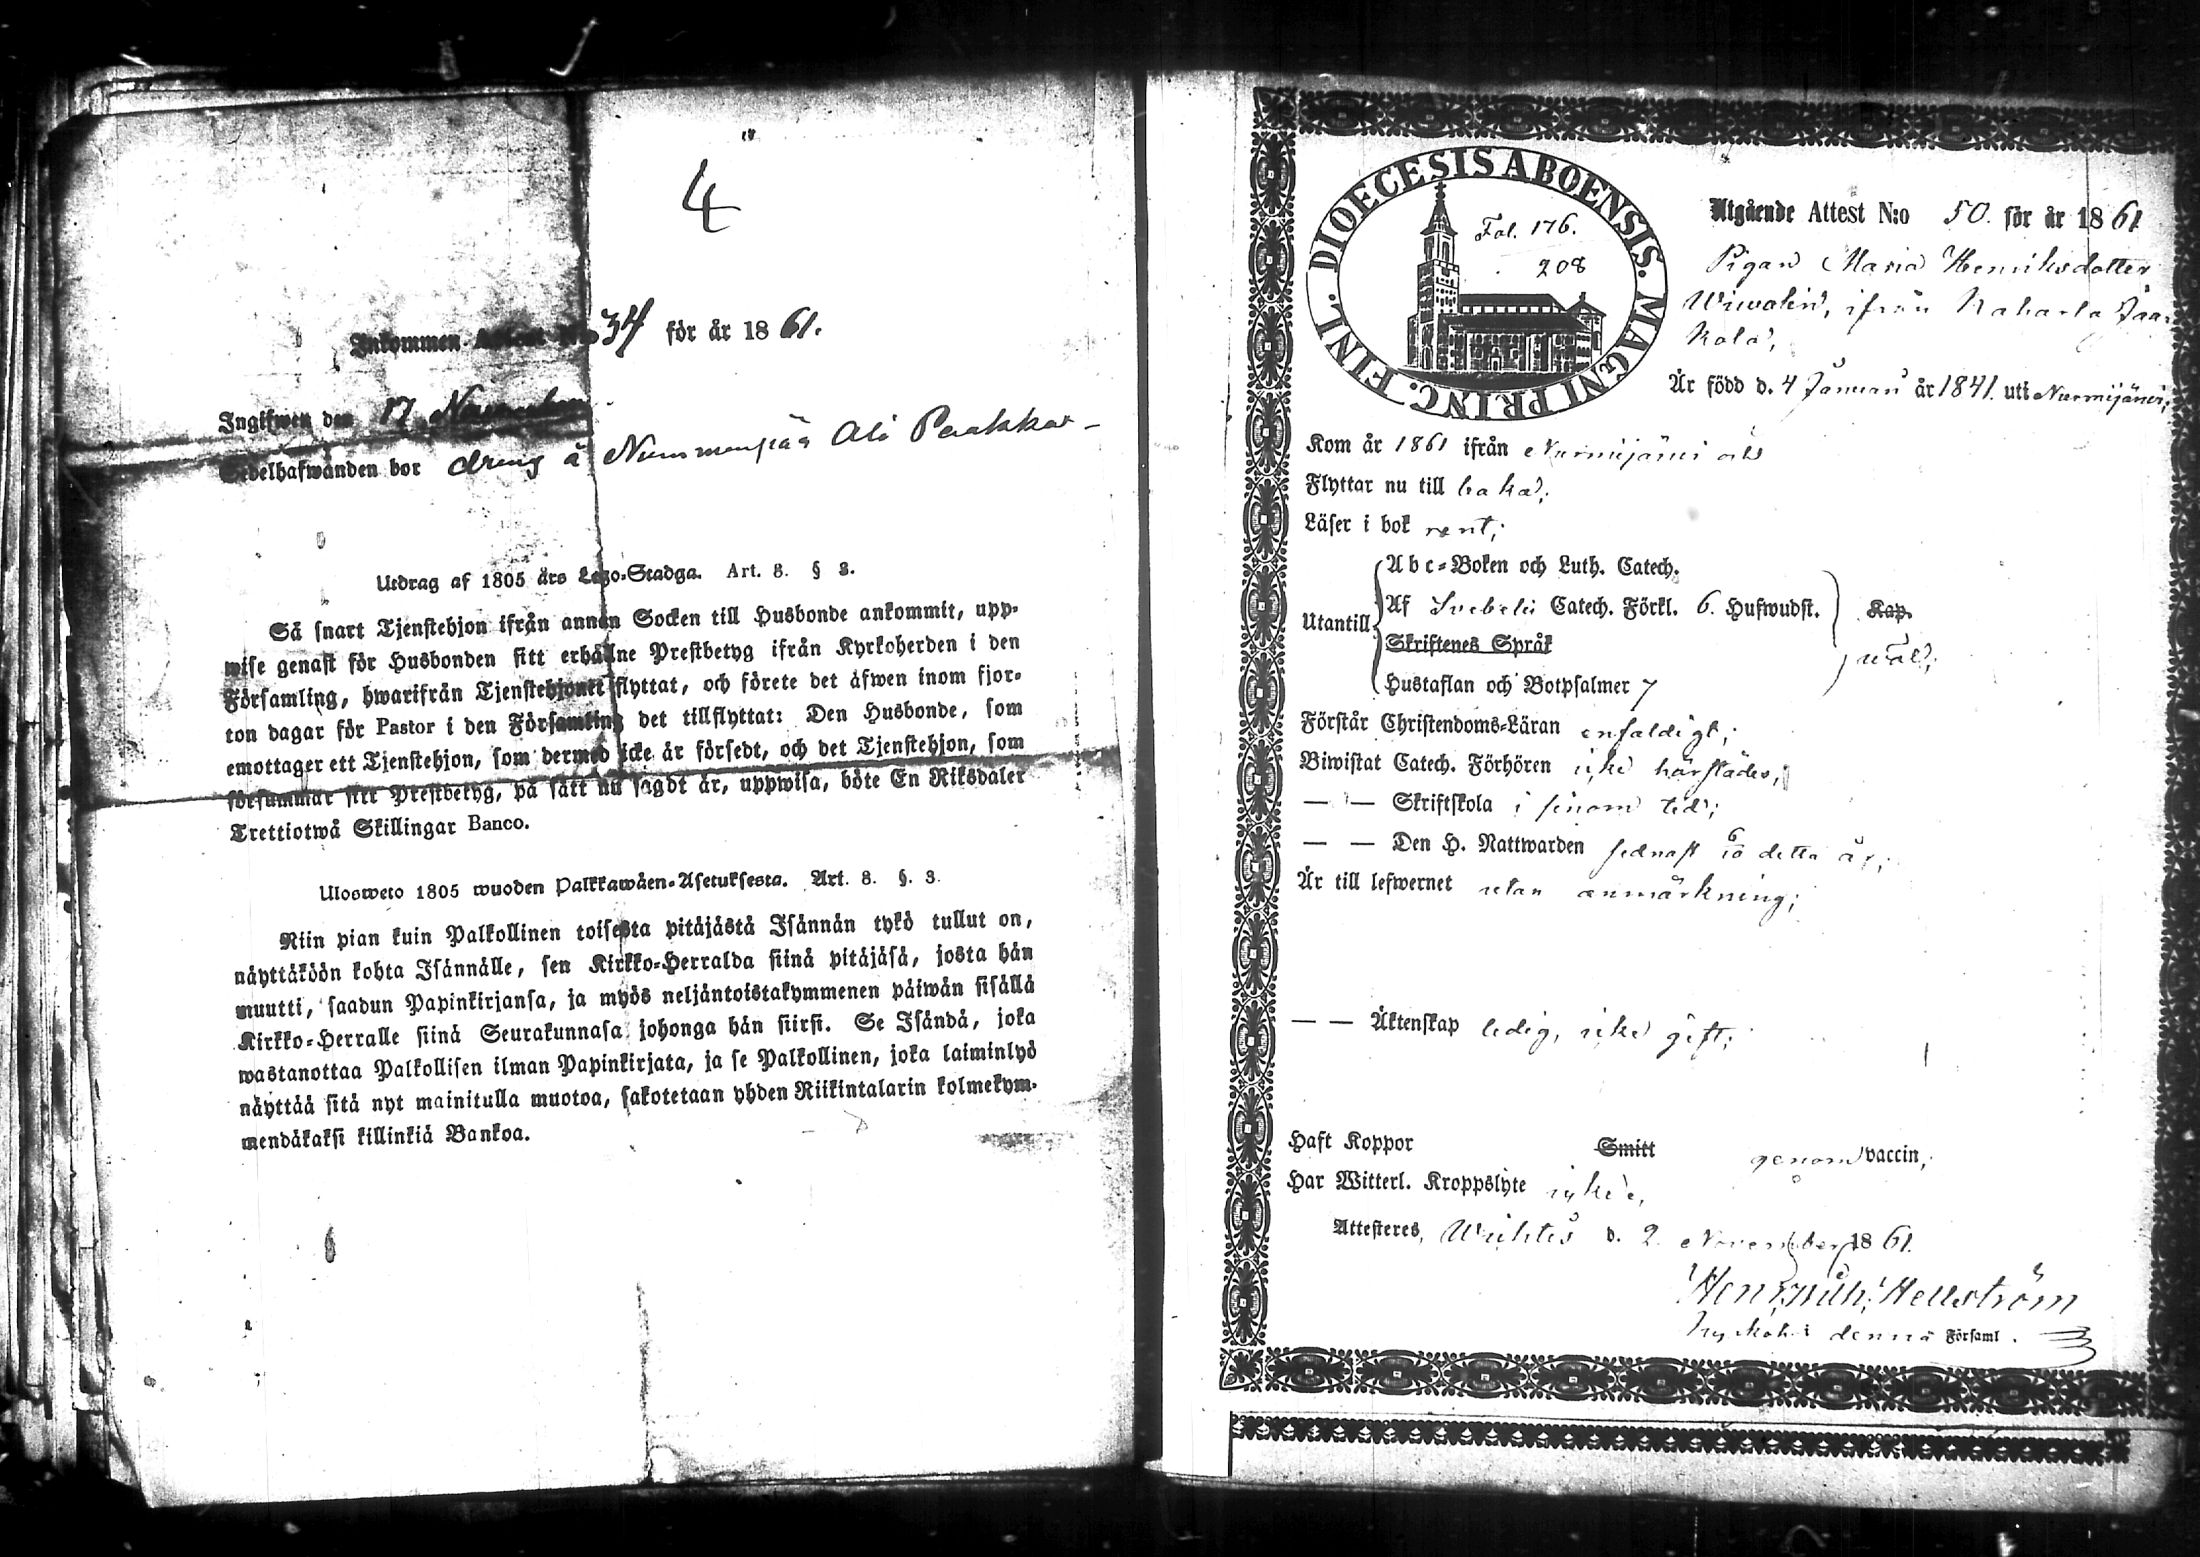 4
Inkommen Attest N:o 34 för år 1861.
Ingifwen den 17 November
Sedelhafwanden bor dreng å Nummenpää Ali Paakkar-
Utdrag af 1805 års Lego-Stadga. Art. 8. § 3.
Så snart Tjenstehjon ifrån annan Socken till Husbonde ankommit, upp-
wise genast för Husbonden sitt erhållne Prestbetyg ifrån Kyrkoherden i den
Församling, hwarifrån Tjenstehjonet flyttat, och förete det äfwen inom fjor-
ton dagar för Pastor i den Församling det tillflyttat: Den Husbonde, som
emottager ett Tjenstehjon, som dermed icke är försedt, och det Tjenstehjon, som
försummar sitt Prestbetyg, på sätt nu sagdt är, uppwisa, böte En Riksdaler
Trettiotwå Skillingar Banco.
Ulosweto 1805 wuoden Palkkawäen-Asetuksesta. Art. 8. §. 3.
Niin pian kuin Palkollinen toisesta pitäjästä Isännän tykö tullut on,
näyttäköön kohta Isännälle, sen Kirkko-Herralda siinä pitäjäsä, josta hän
muutti, saadun Papinkirjansa, ja myös neljäntoistakymmenen päiwän sisällä
Kirkko-Herralle siinä Seurakunnasa johonga hän siirsi. Se Isändä, joka
wastanottaa Palkollisen ilman Papinkirjata, ja se Palkollinen, joka laiminlyö
näyttää sitä nyt mainitulla muotoa, sakotetaan yhden Riikintalarin kolmekym-
mendäkaksi killinkiä Bankoa.
DIOECESIS ABOENSIS. MAGNI PRINC. FINL.
Fol. 176.
208
Utgående Attest N:o 50. för år 1861
Pigan Maria Henriksdotter
Wiwolin, ifrån Haharla Jaa-
kola,
Är född d. 4 Januari år 1841. uti Nurmijärvi,
Kom år 1861 ifrån Nurmijärvi och
Flyttar nu till baka,
Läser i bok rent;
Utantill
Abc-Boken och Luth. Catech.
Af Svebelii Catech. Förkl. 6. Hufwudst.
Kap.
Skriftenes Språk
Hustaflan och Botpsalmer 7
wäl;
Förstår Christendoms-Läran enfaldigt;
Biwistat Catech. Förhören icke härstädes;
— — Skriftskola i sinom tid;
— — Den H. Nattwarden sednast 6/10 detta år;
Är till lefwernet utan anmärkning;
— — Äktenskap ledig, icke gift;
Haft Koppor Smitt genom vaccin,
Har Witterl. Kroppslyte icke,
Attesteres, Wichtis d. 2 November 1861.
Henrik Hellström
Kyrkoh. i denna Församl.